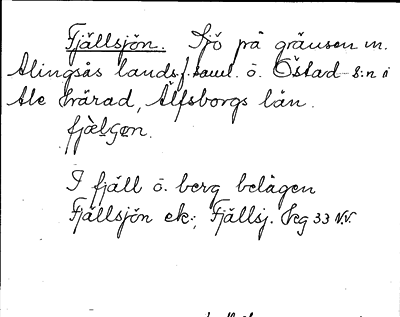 Fjällsjön. Sjö på gränsen m.
Alingsås landsf.saml. o. Östad s:n i
Ale härad, Älfsborgs län.
I fjäll o. berg belägen
Fjällsjön ek:, Fjällsj. Keg 33 N.V.